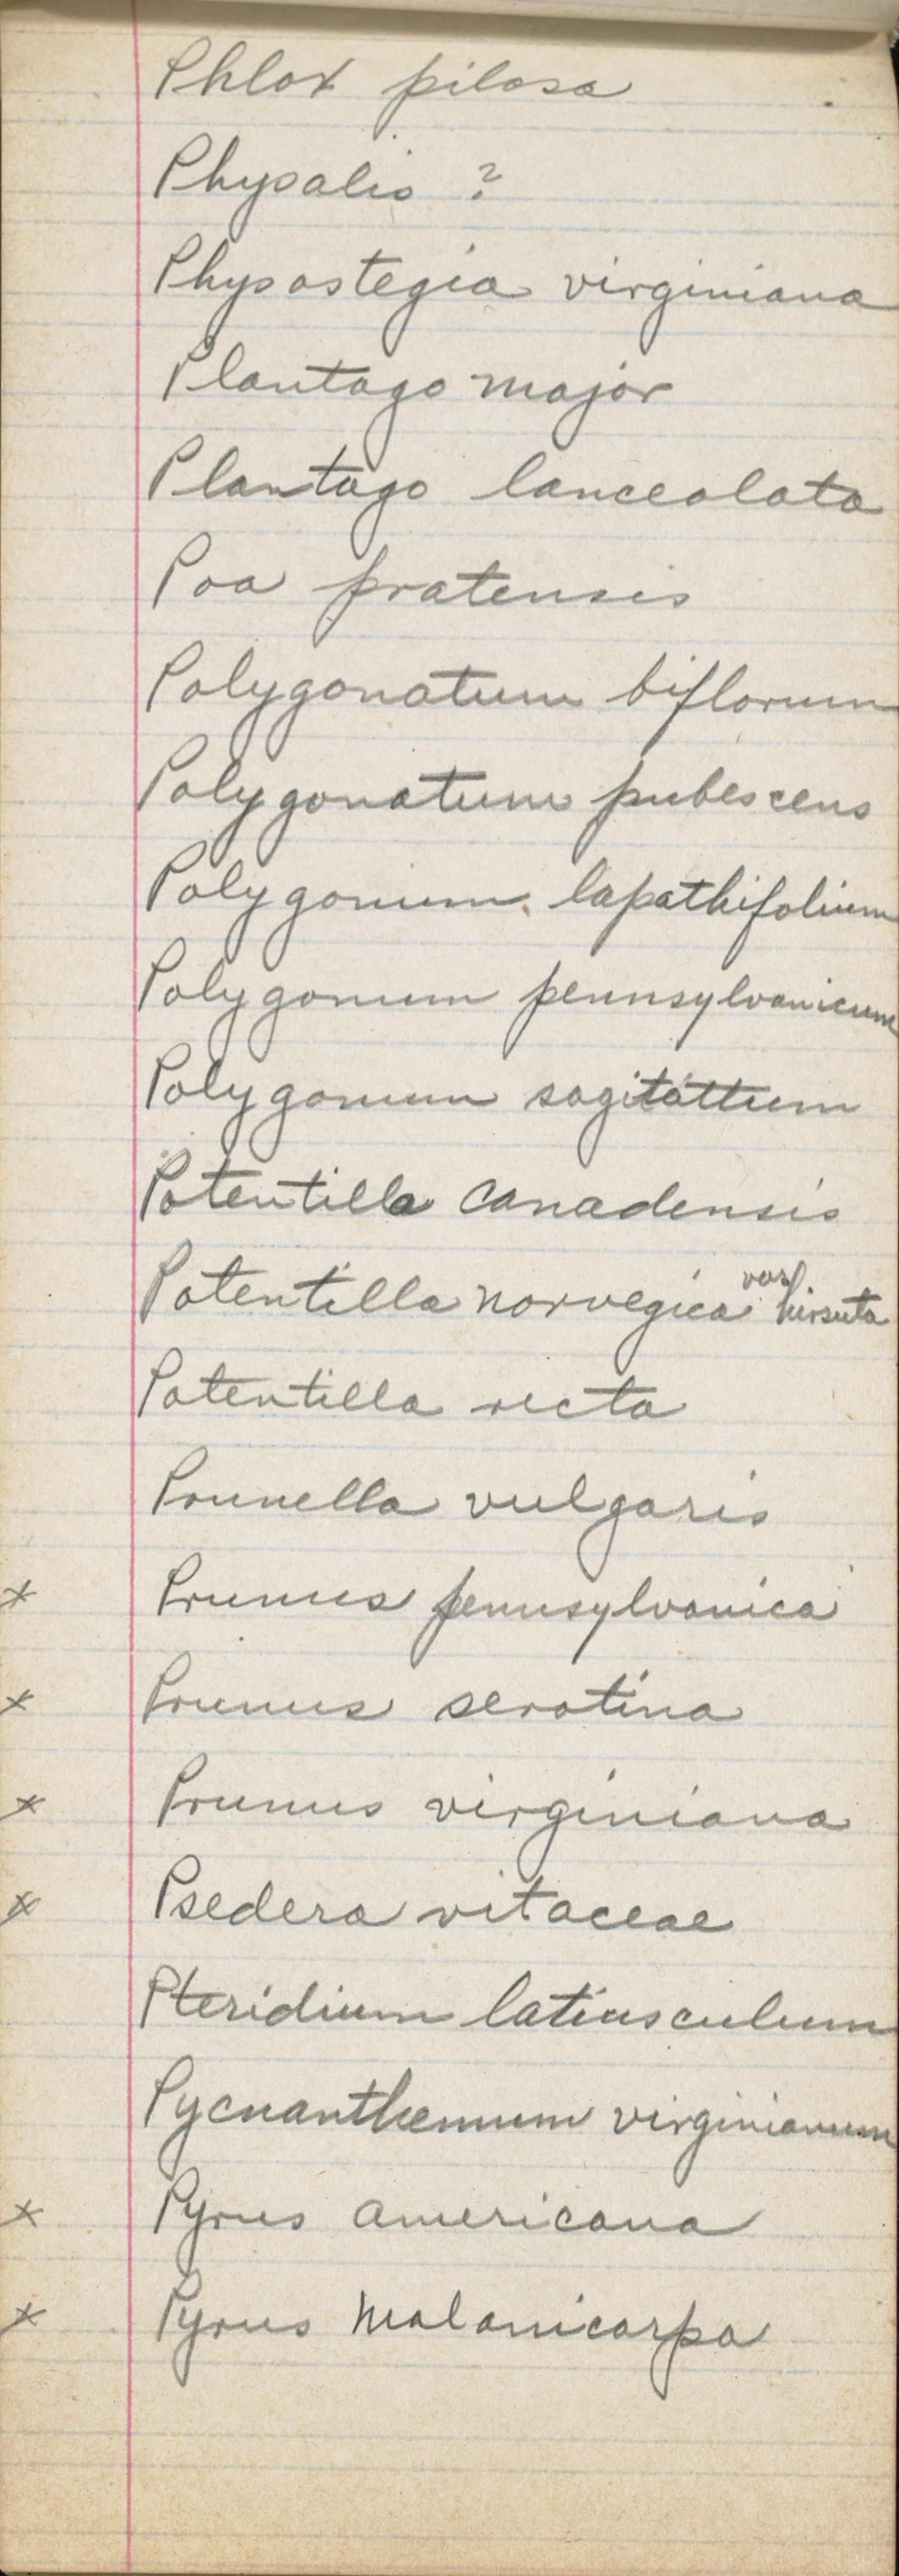 Phlox pilosa
Physalis ?
Physostegia virginiana
Plantago major
Plantago lanceolata
Poa pratensis
Polygonatum biflorum
Polygonatum pubescens
Polygonum lapathifolium
Polygonum pennsylvanicum
Polygonum sagitattum
Potentilla canadensis
Potentilla norvegica var. hirsuta
Potentilla recta
Prunella vulgaris
x Prunus pennsylvanica
x Prunus serotina
x Prunus virginiana
x Psedera vitaceae
Pteridium latiusculum
Pycnanthemum virginianum
x Pyrus americana
x Pyrus malanicarpa